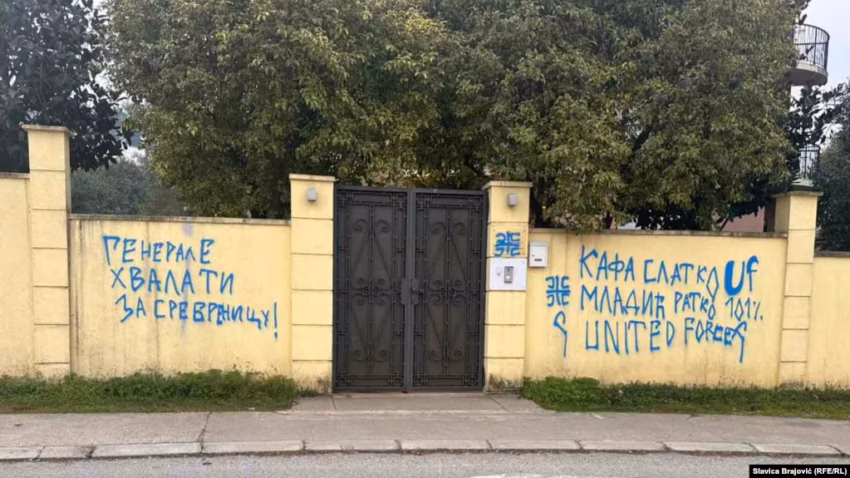 ГЕНЕРАЛЕ
ХВАЛА ТИ
ЗА СРЕБРЕНИЦУ!
КАФА СЛАТКО UF
МЛАДИЋ РАТКО 101%
UNITED FORCES
Slavica Brajović (RFE/RL)